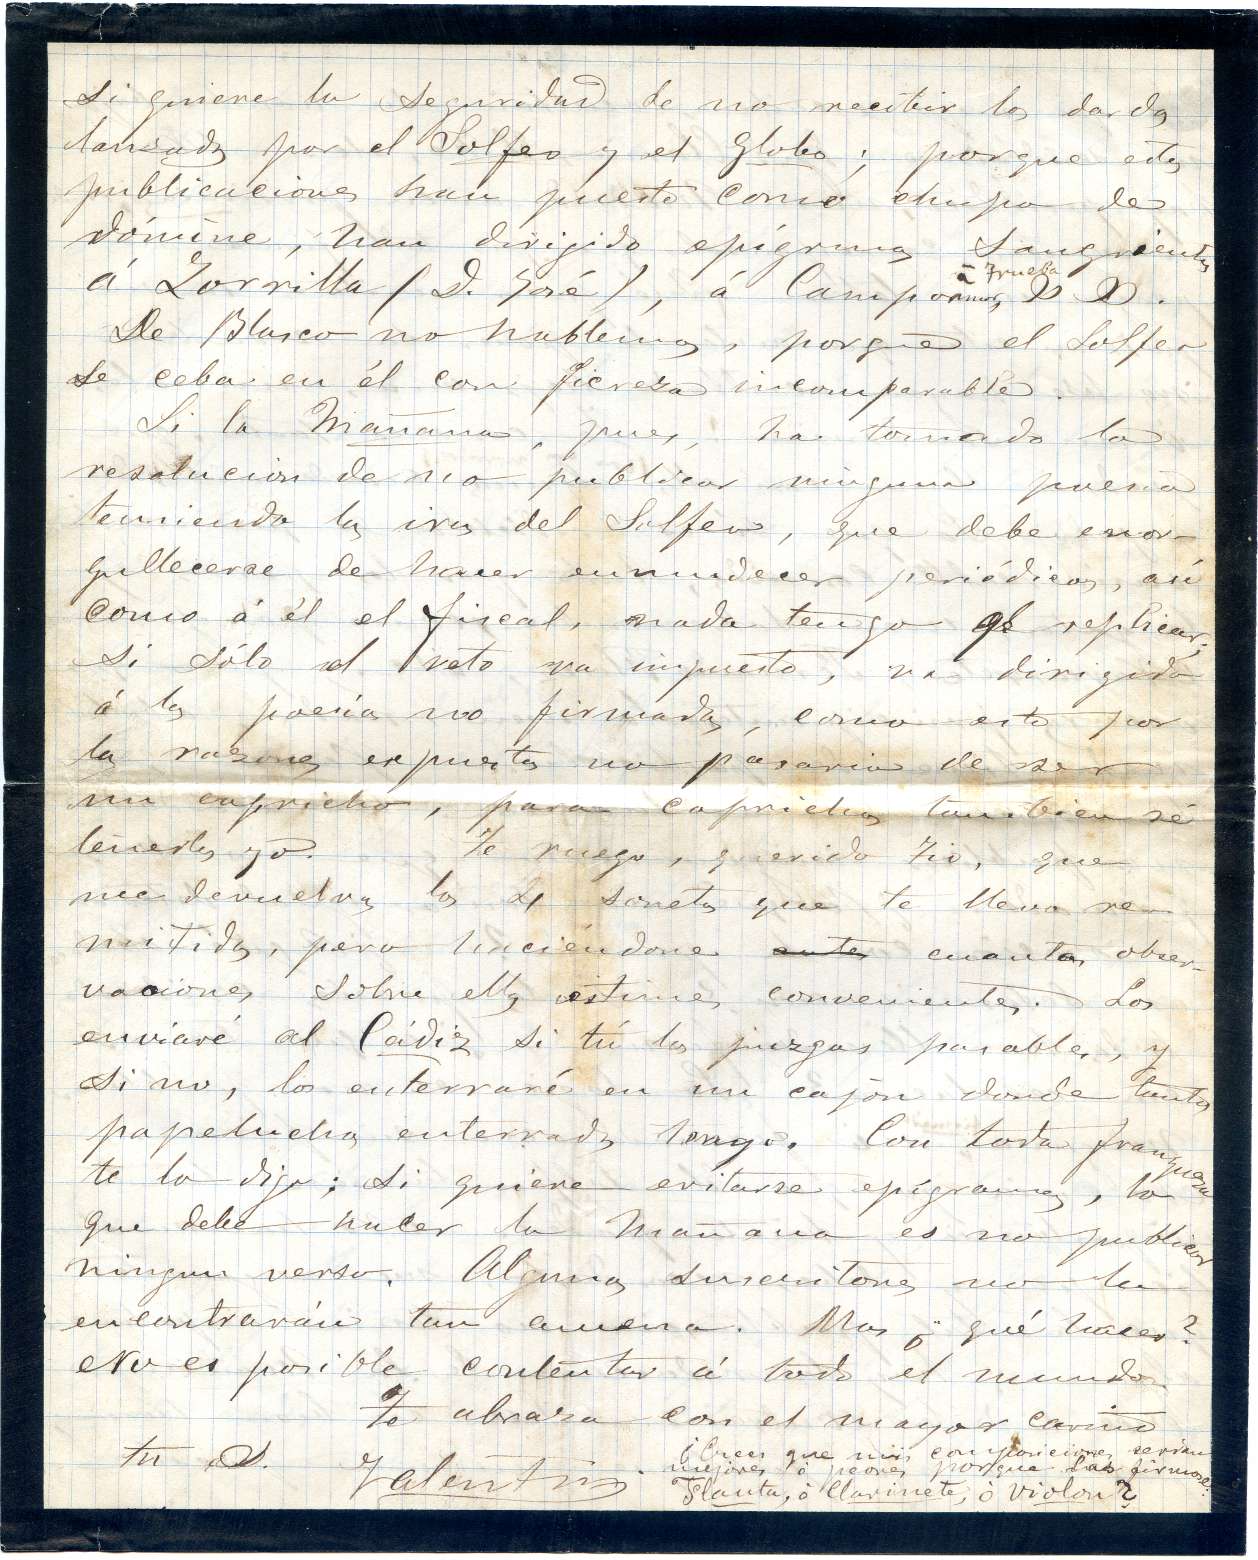 si quiere la seguridad de no recibir los dardos
lanzados por el Solfeo y el Globo; porque estas
publicaciones han puesto como chupa de
dómine, han dirigido epígramas sangrientos
á Zorrilla (D. José), á Campoamor, á Trueba
De Blasco no hablemos, porque el Solfeo
se ceba en él con fiereza incomparable.
Si la Mañana, pues, ha tomado la
resolucion de no publicar ninguna poesia
temiendo las iras del Solfeo, que debe enor-
gullecerse de hacer enmudecer periódicos, así
como á él el fiscal, nada tengo qe replicar;
si sólo el veto va impuesto, va dirigido
á las poesías no firmadas, como esto por
las razones expuestas no pasaria de ser
un capricho, para caprichos tambien sé
tenerlos yo. Te ruego, querido tio, que
me devuelvas los 4 sonetos que te llevo re-
mitidos, pero haciéndome cuantas obser-
vaciones sobre ellos estimes convenientes. Los
enviaré al Cádiz si tú los juzgas pasables, y
si no, los enterraré en un cajón donde tantos
papeluchos enterrados tengo. Con toda franqueza
te lo digo; si quiere evitarse epígramas, lo
que debe hacer la Mañana es no publicar
ningun verso. Algunos suscritores no la
encontrarán tan amena. Mas ¿qué hacer?
No es posible contentar á todo el mundo
Te abraza con el mayor cariño
tu S.
Valentin
¿Crees que mis composiciones serían
mejores ó peores porque las firmase:
Flauta, ó Clarinete, ó Violon?